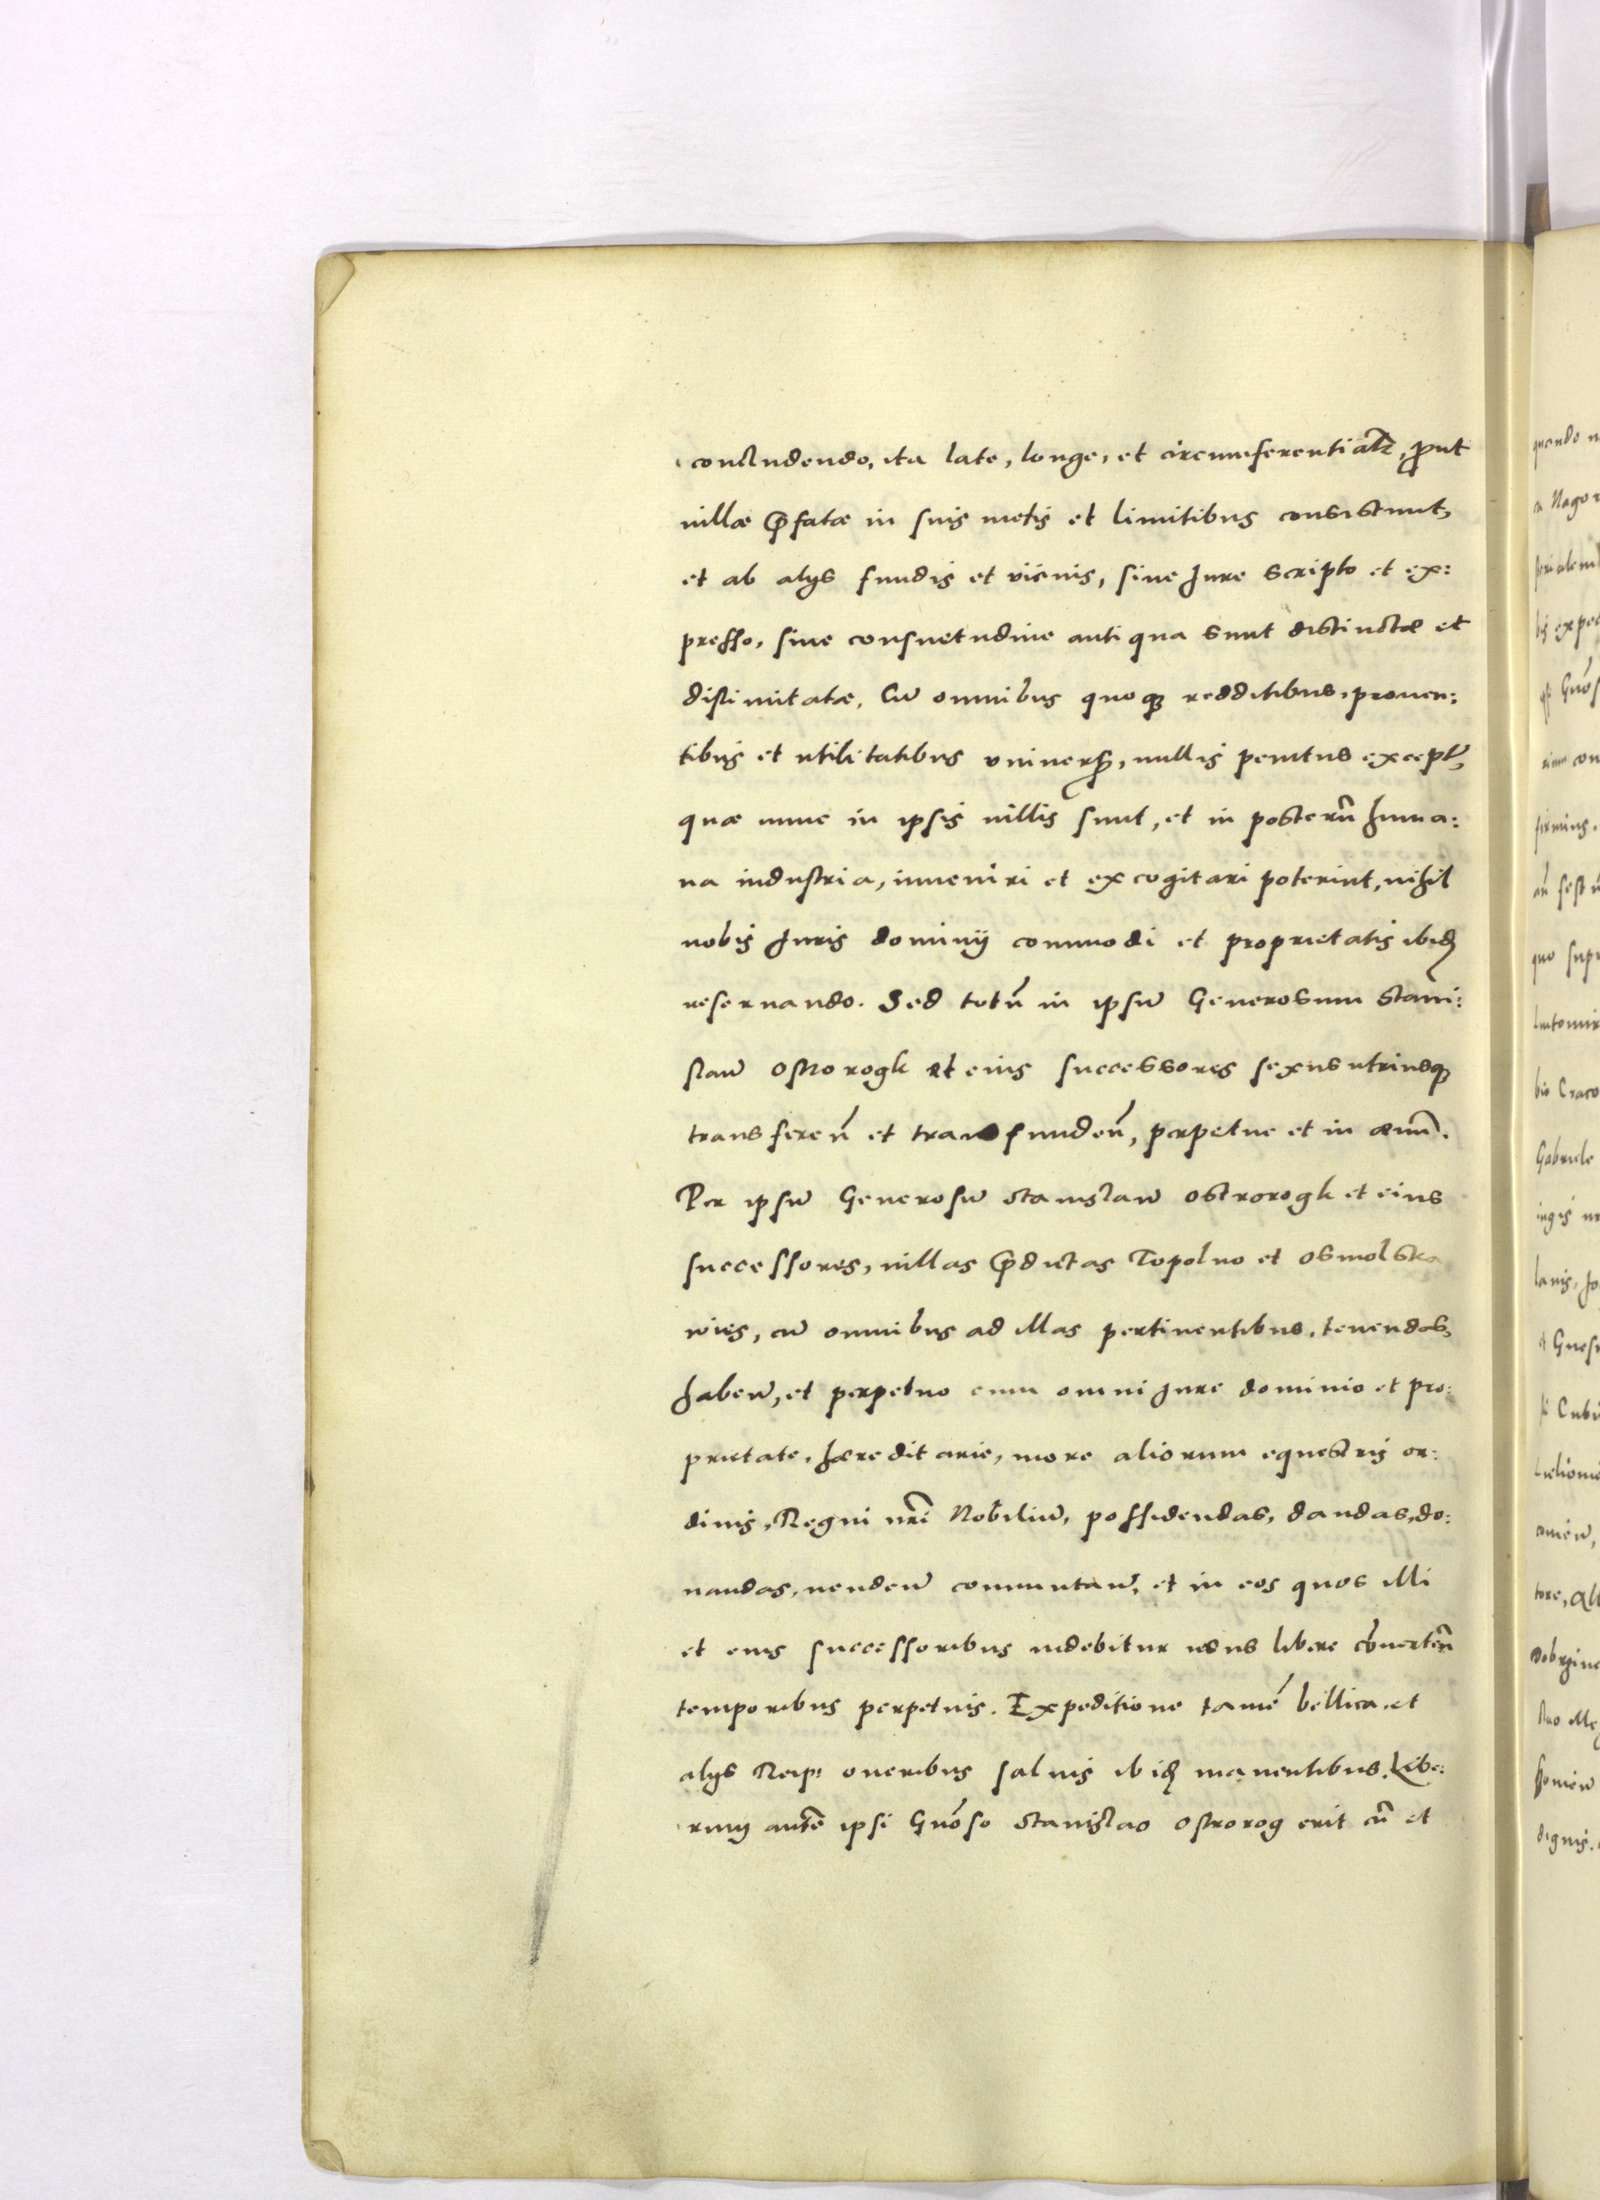 concludendo, ita late, longe, et circumferentialr, ꝓut
villæ p̄fatæ in suis metis et limitibus consistunt,
et ab alijs fundis et vicinis, siue Jure scripto et ex:
presso, siue consuetudine antiqua sunt distinctæ et
dislimitatæ, Cū omnibus quoqꝫ redditibus, prouen:
tibus et vtilitatibus vniuersꝭ, nullis penitus exceptꝭ,
quæ nunc in ipsis villis sunt, et in posterū huma:
na industria, inueniri et excogitari poterint, nihil
nobis Juris dominij commodi et proprietatis ibidꝫ
reseruando. Sed totū in ipsū Generosum Stani:
slaū Ostrorogk et eius successores sexus utriusqꝫ
transferen̄ et transfunden̄, perpetue et in æuū.
Per ipsū Generosū Stanislaū Ostrorogk et eius
successores, villas p̄dictas Topolno et Osmolska
wies, cū omnibus ad illas pertinentibus, tenendas,
habeñ, et perpetuo cum omni Jure dominio et pro:
prietate, hæreditarie, more aliorum equestris or:
dinis, Regni nr̄i Nobiliū, possidendas, dandas, do:
nandas, vendeñ commutañ, et in eos quos illi
et eius successoribus videbitur usus libere cōuerten̄
temporibus perpetuis. Expeditione tamē bellica et
alijs Reip: oneribus saluis ibidꝫ manentibus. Libe:
rum autē ipsi Gnōso Stanislao Ostrorog erit cū et